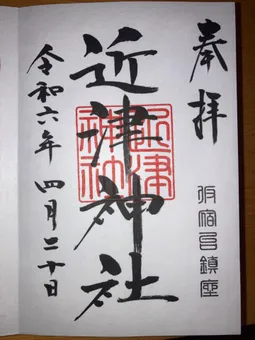 奉拝
宿邑鎮座
近津神社
近津神社
令和六年 四月二十日